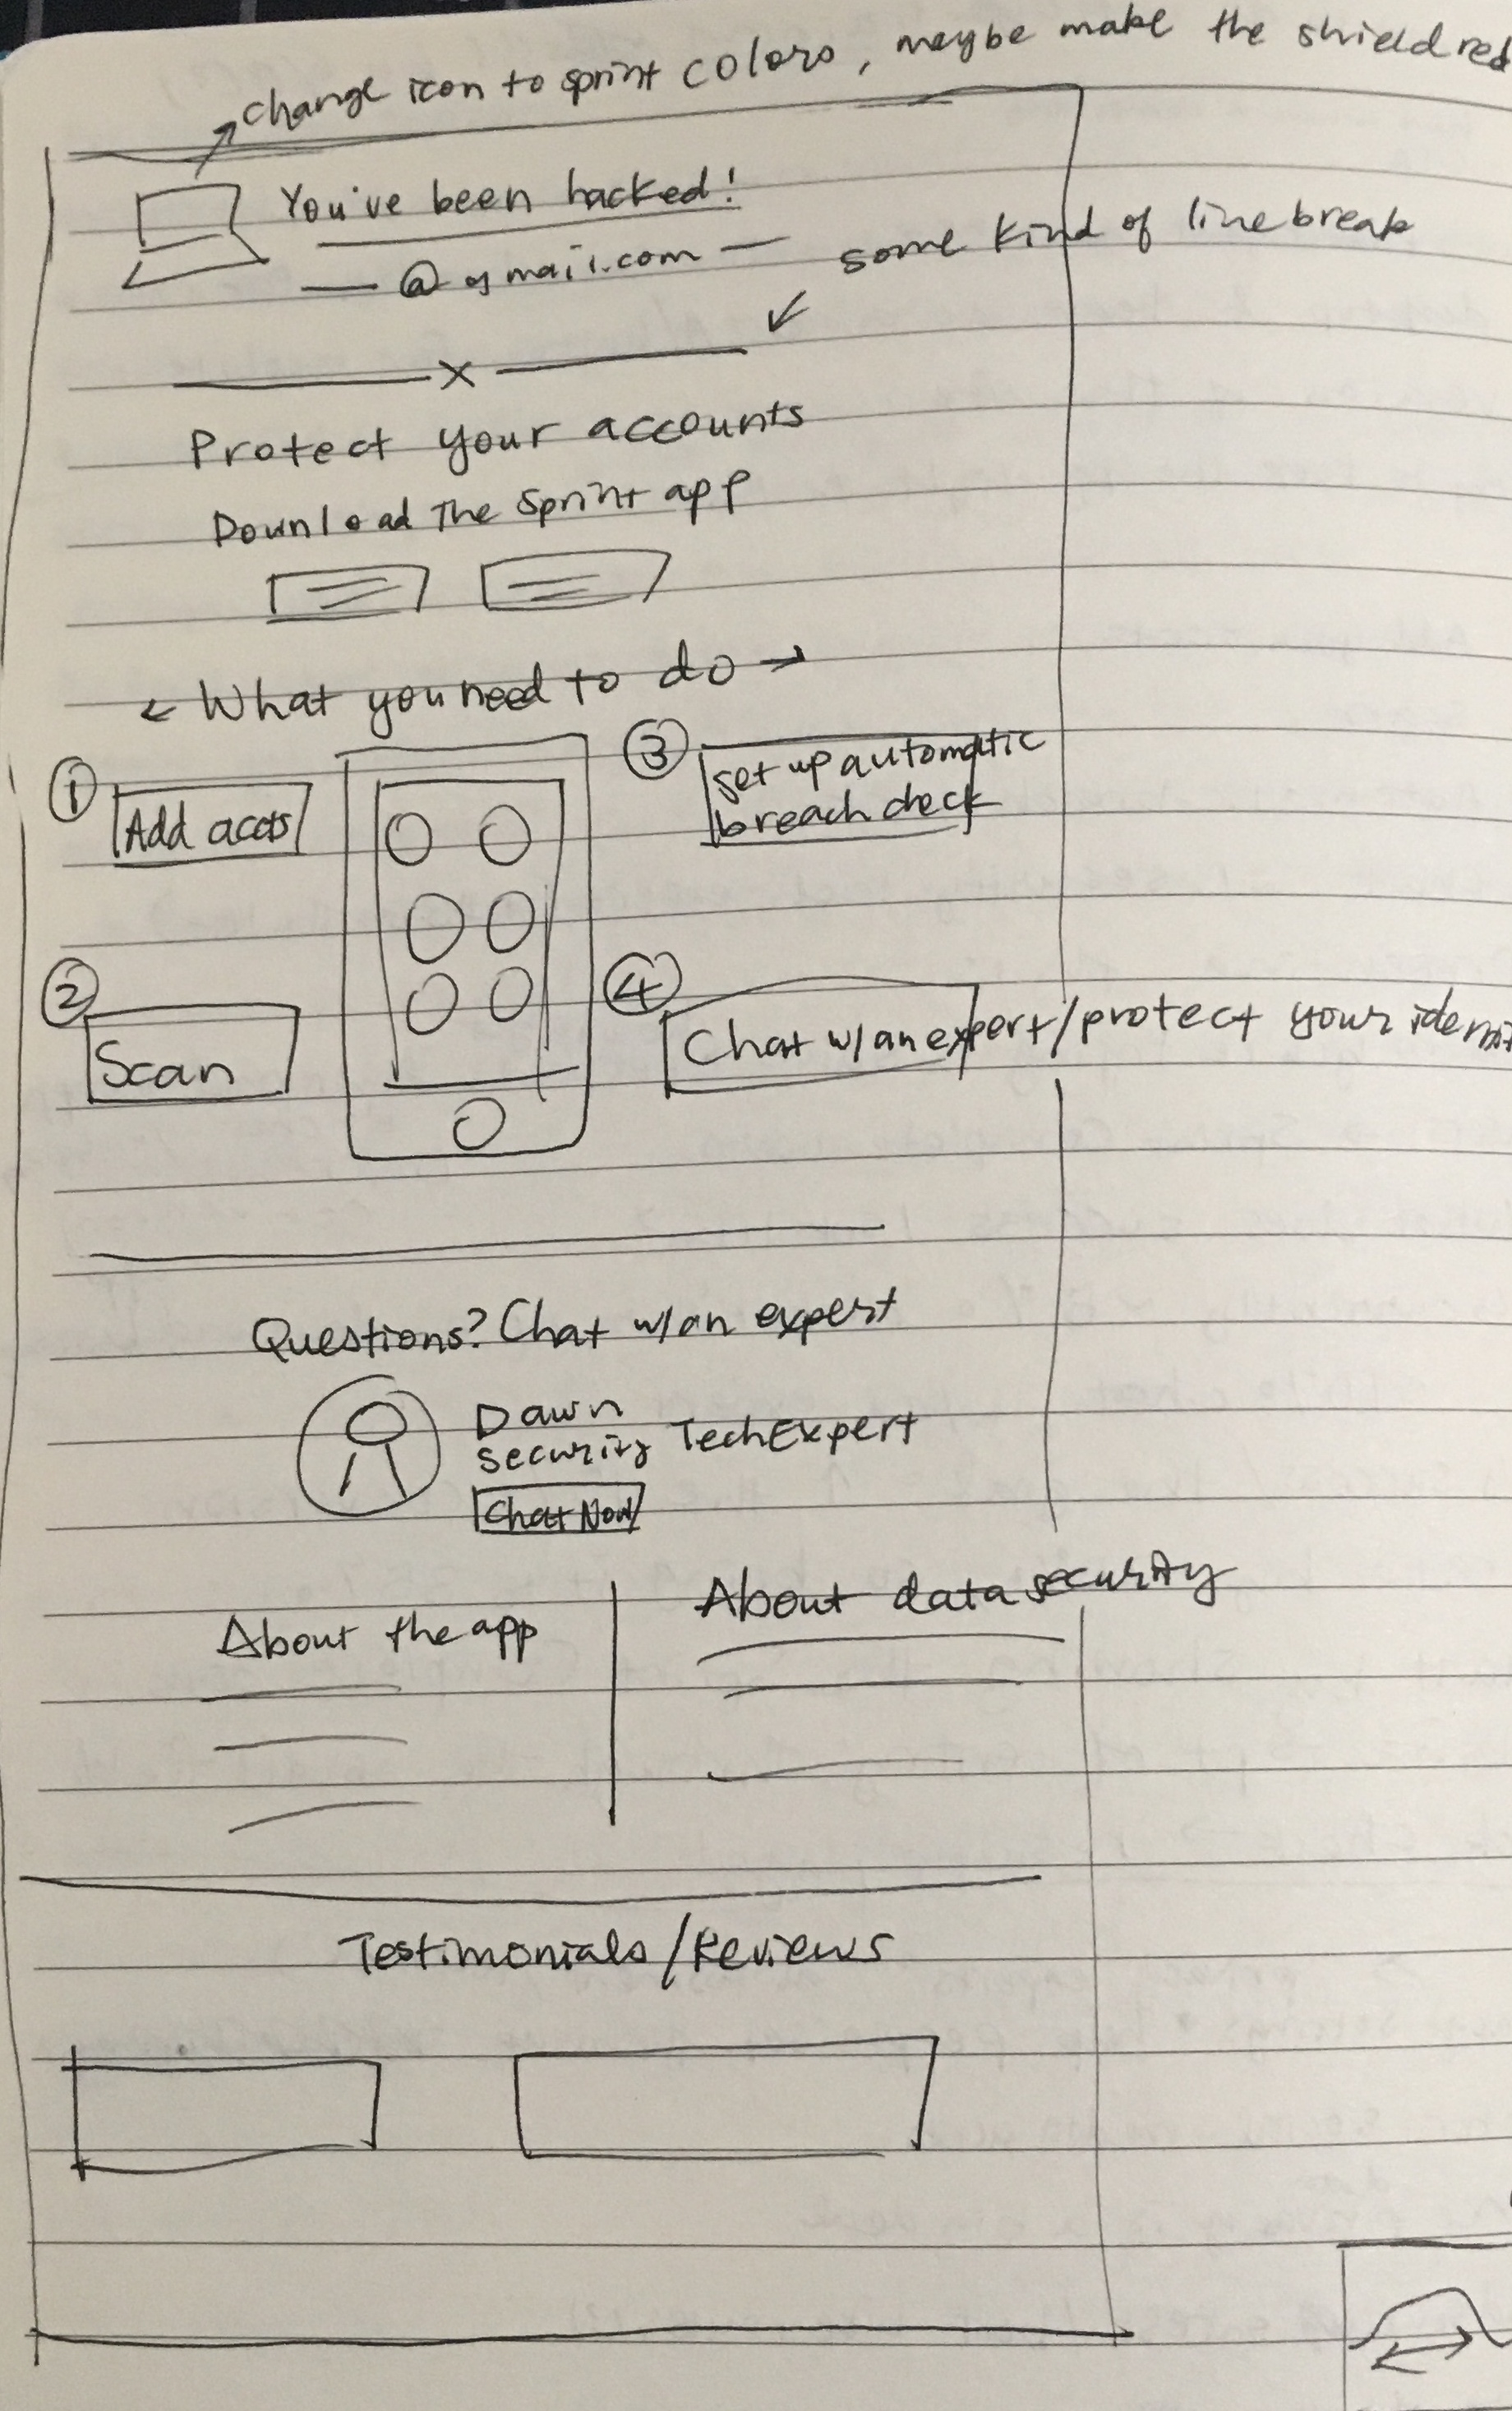 change icon to sprint colors, maybe make the shield red
You've been hacked!
— @gmail.com —
some kind of line break
x
Protect your accounts
Download The Sprint app
← What you need to do →
①
Add accts
②
Scan
③
set up automatic
breach check
④
Chat w/an expert/protect your
Questions? Chat w/an expert
Dawn
security TechExpert
Chat Now
About the app
About data security
Testimonials/Reviews